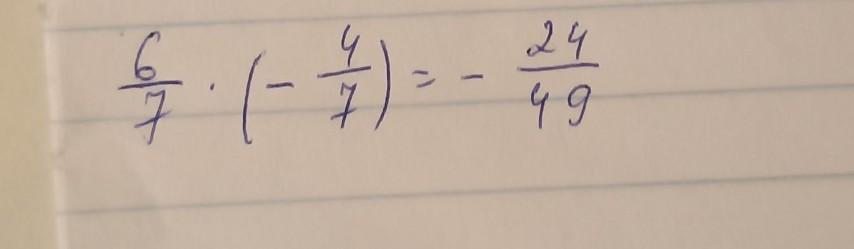 6/7 · (- 4/7) = - 24/49